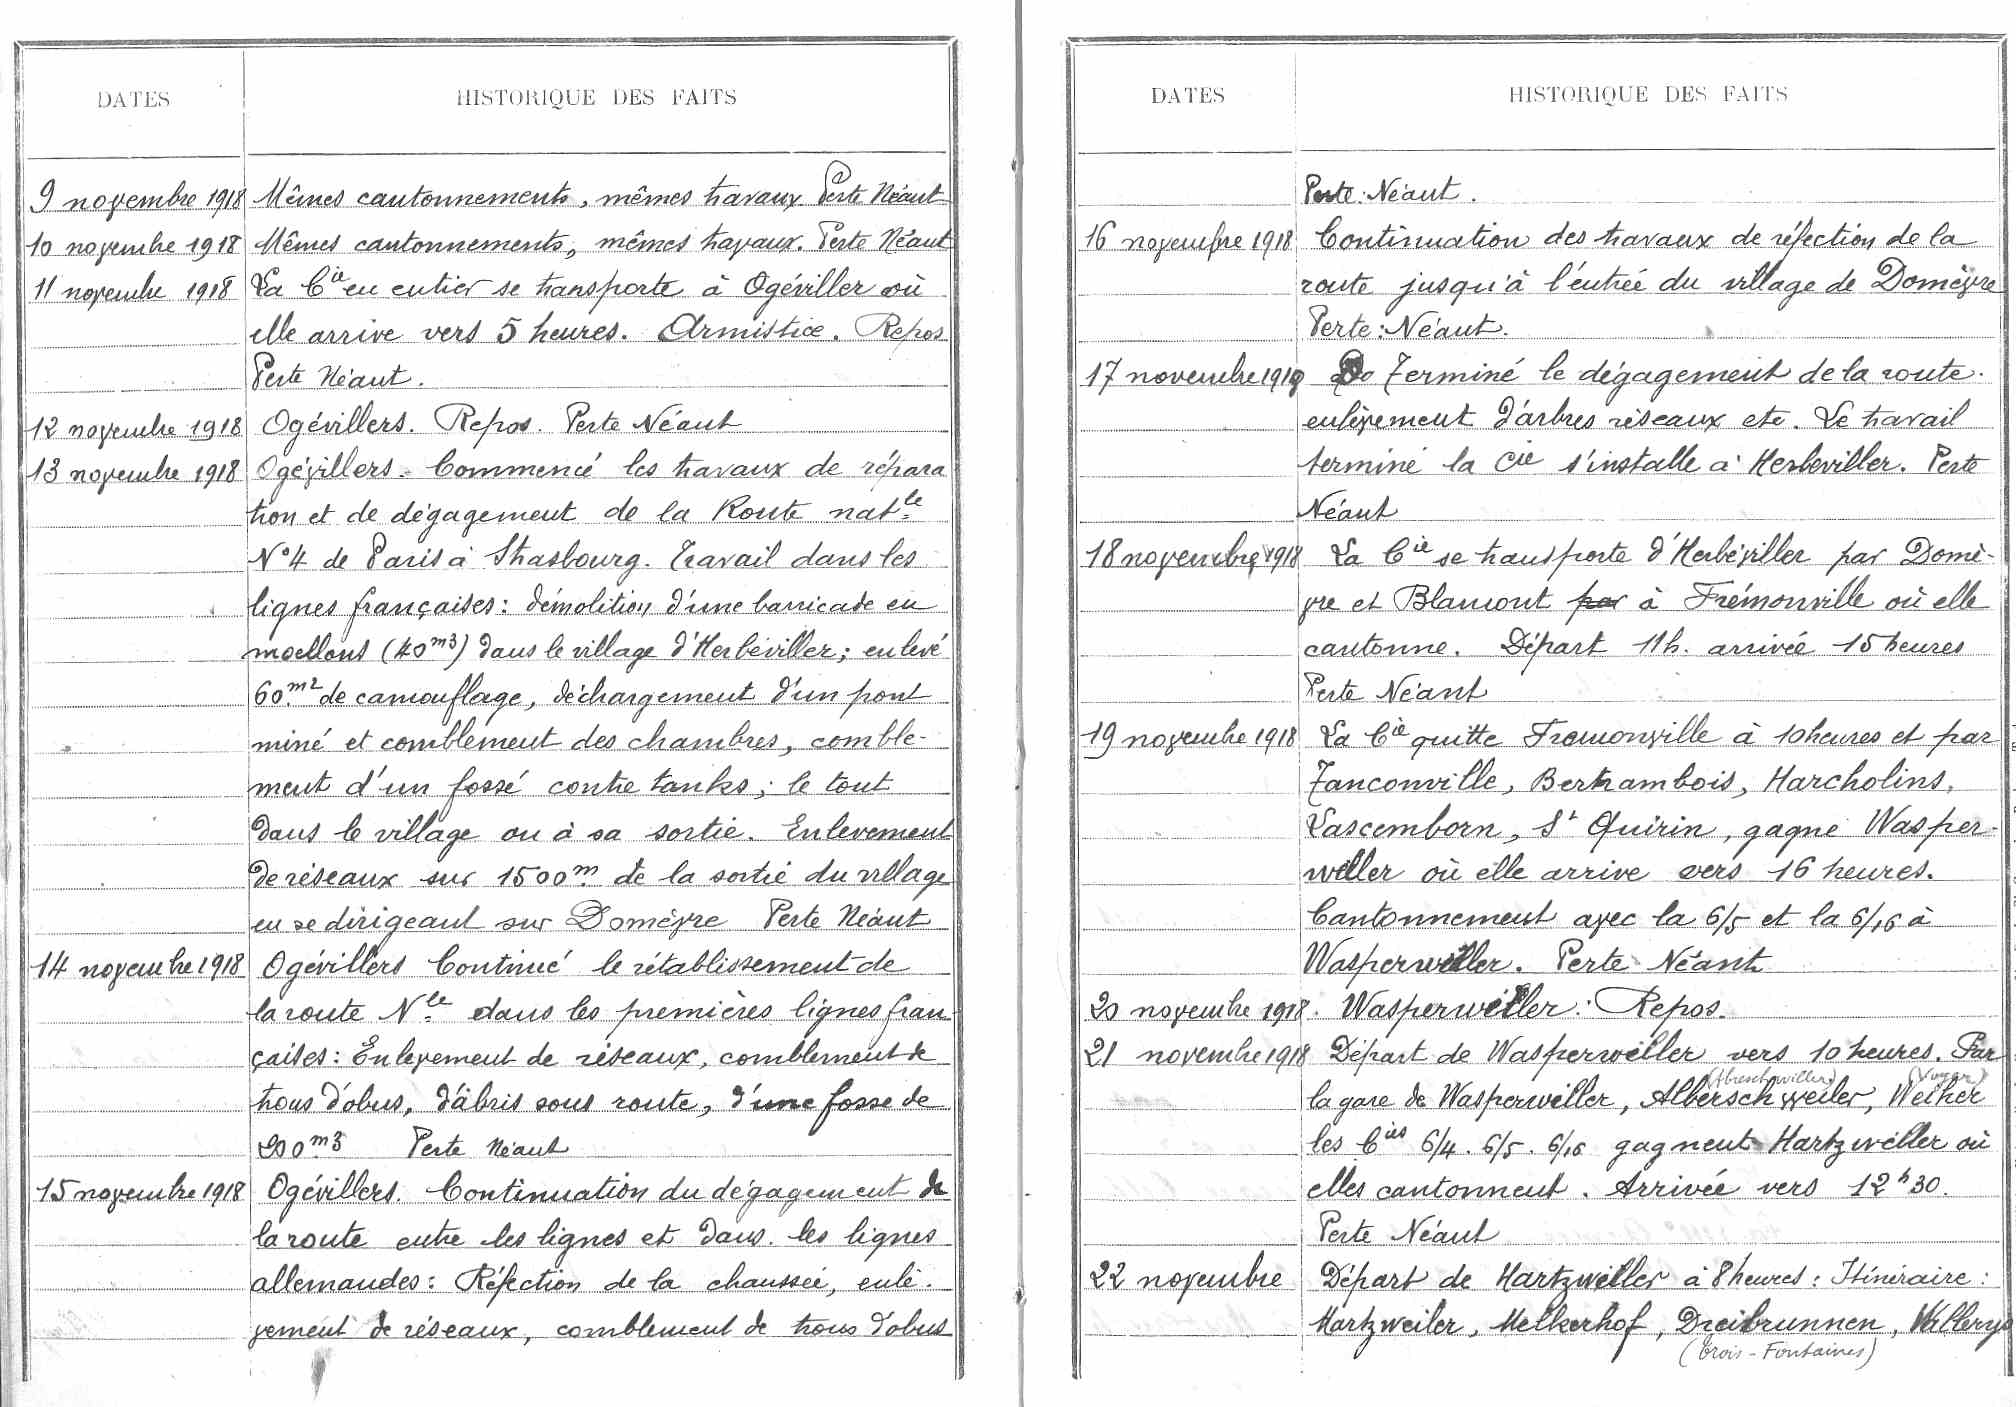 DATES
HISTORIQUE DES FAITS
9 novembre 1918 Mêmes cantonnements, mêmes travaux Perte Néant
10 novembre 1918 Mêmes cantonnements, mêmes travaux. Perte Néant
11 novembre 1918 La Cie en entier se transporte à Ogéviller où
elle arrive vers 5 heures. Armistice. Repos
Perte Néant.
12 novembre 1918 Ogévillers. Repos. Perte Néant
13 novembre 1918 Ogévillers. Commencé les travaux de répara
tion et de dégagement de la Route natle
N°4 de Paris à Strasbourg. Travail dans les
lignes françaises: démolition d'une barricade en
moellons (40m3) dans le village d'Herbéviller; enlevé
60m2 de camouflage, déchargement d'un pont
miné et comblement des chambres, comble-
ment d'un fossé contre tanks; le tout
dans le village ou à sa sortie. Enlevement
de réseaux sur 1500m. de la sortie du village
en se dirigeant sur Domèvre Perte Néant
14 novembre 1918 Ogévillers Continué le rétablissement de
la route Nle dans les premières lignes fran-
çaises: Enlevement de réseaux, comblement de
trous d'obus, d'abris sous route, d'une fosse de
200m3 Perte Néant
15 novembre 1918 Ogévillers. Continuation du dégagement de
la route entre les lignes et dans les lignes
allemandes: Réfection de la chaussée, enlè-
vement de réseaux, comblement de trous d'obus
DATES
HISTORIQUE DES FAITS
Perte: Néant.
16 novembre 1918 Continuation des travaux de réfection de la
route jusqu'à l'entrée du village de Domèvre
Perte: Néant.
17 novembre 1918 Terminé le dégagement de la route.
enlèvement d'arbres réseaux etc. Le travail
terminé la Cie s'installe à Herbeviller. Perte
Néant
18 novembre 1918 La Cie se transporte d'Herbéviller par Domè-
vre et Blamont par à Frémonville où elle
cantonne. Départ 11h. arrivée 15 heures
Perte Néant
19 novembre 1918 La Cie quitte Fremonville à 10 heures et par
Tanconville, Bertrambois, Harcholins,
Lascemborn, St Quirin, gagne Wasper-
willer où elle arrive vers 16 heures.
Cantonnement avec la 6/5 et la 6/16 à
Wasperwiller. Perte Néant
20 novembre 1918. Wasperwiller: Repos.
21 novembre 1918 Départ de Wasperwiller vers 10 heures. Par
(Abreschwiller) (Voyer)
la gare de Wasperwiller, Alberschweiler, Weiher
les Cies 6/4. 6/5. 6/16 gagnent Hartzwiller où
elles cantonnent. Arrivée vers 12h30.
Perte Néant
22 novembre Départ de Hartzwiller à 8 heures: Itinéraire:
Hartzweiler, Melkerhof, Dreibrunnen,
(Trois-Fontaines)